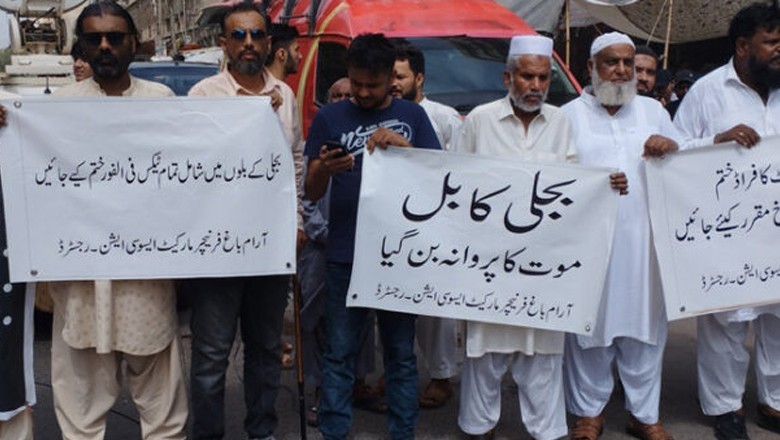 بجلی کے بلوں میں شامل تمام ٹیکس فی الفور ختم کیے جائیں
آرام باغ فرنیچر مارکیٹ ایسوسی ایشن۔رجسٹرڈ
بجلی کا بل
موت کا پروانہ بن گیا
آرام باغ فرنیچر مارکیٹ ایسوسی ایشن۔رجسٹرڈ
کا فراڈ ختم
مقرر کیئے جائیں
ایسوسی ایشن۔رجسٹرڈ